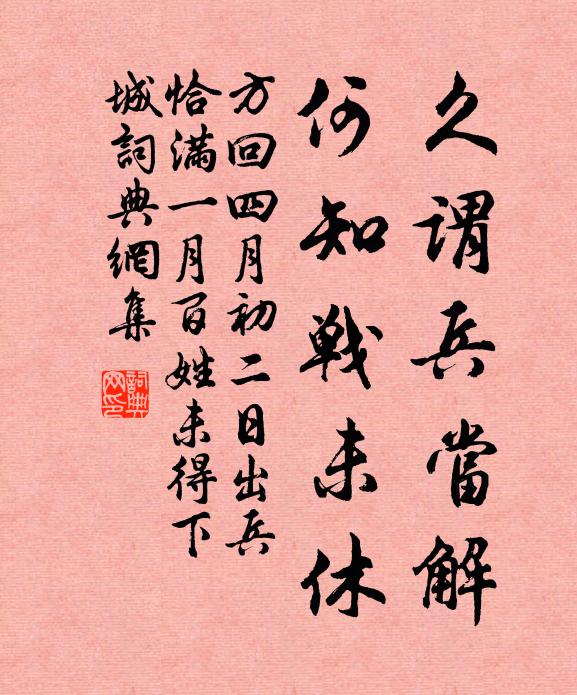 久謂兵當解
何知戰未休
方回四月初二日出兵
恰滿一月百姓未得下
城詞典網集
詞典
网印